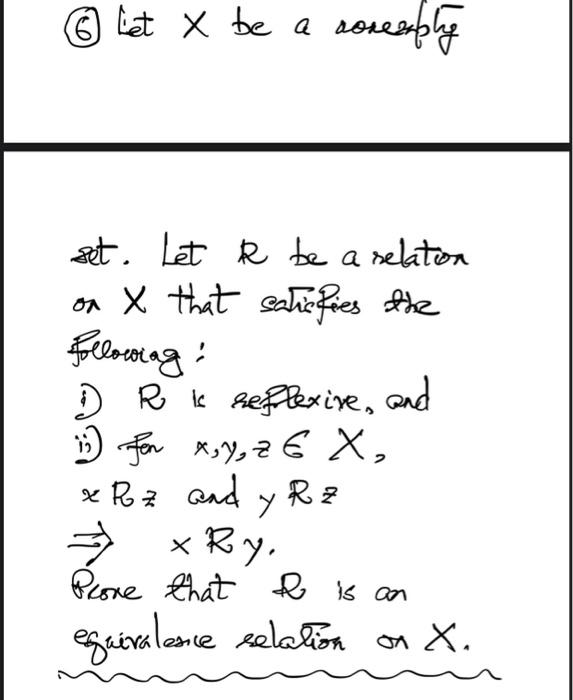 ⑥ Let X be a nonempty
set. Let R be a relation
on X that satisfies the
following:
i) R is reflexive, and
ii) for x, y, z ∈ X,
x R z and y R z
⇒ x R y.
Prove that R is an
equivalence relation on X.